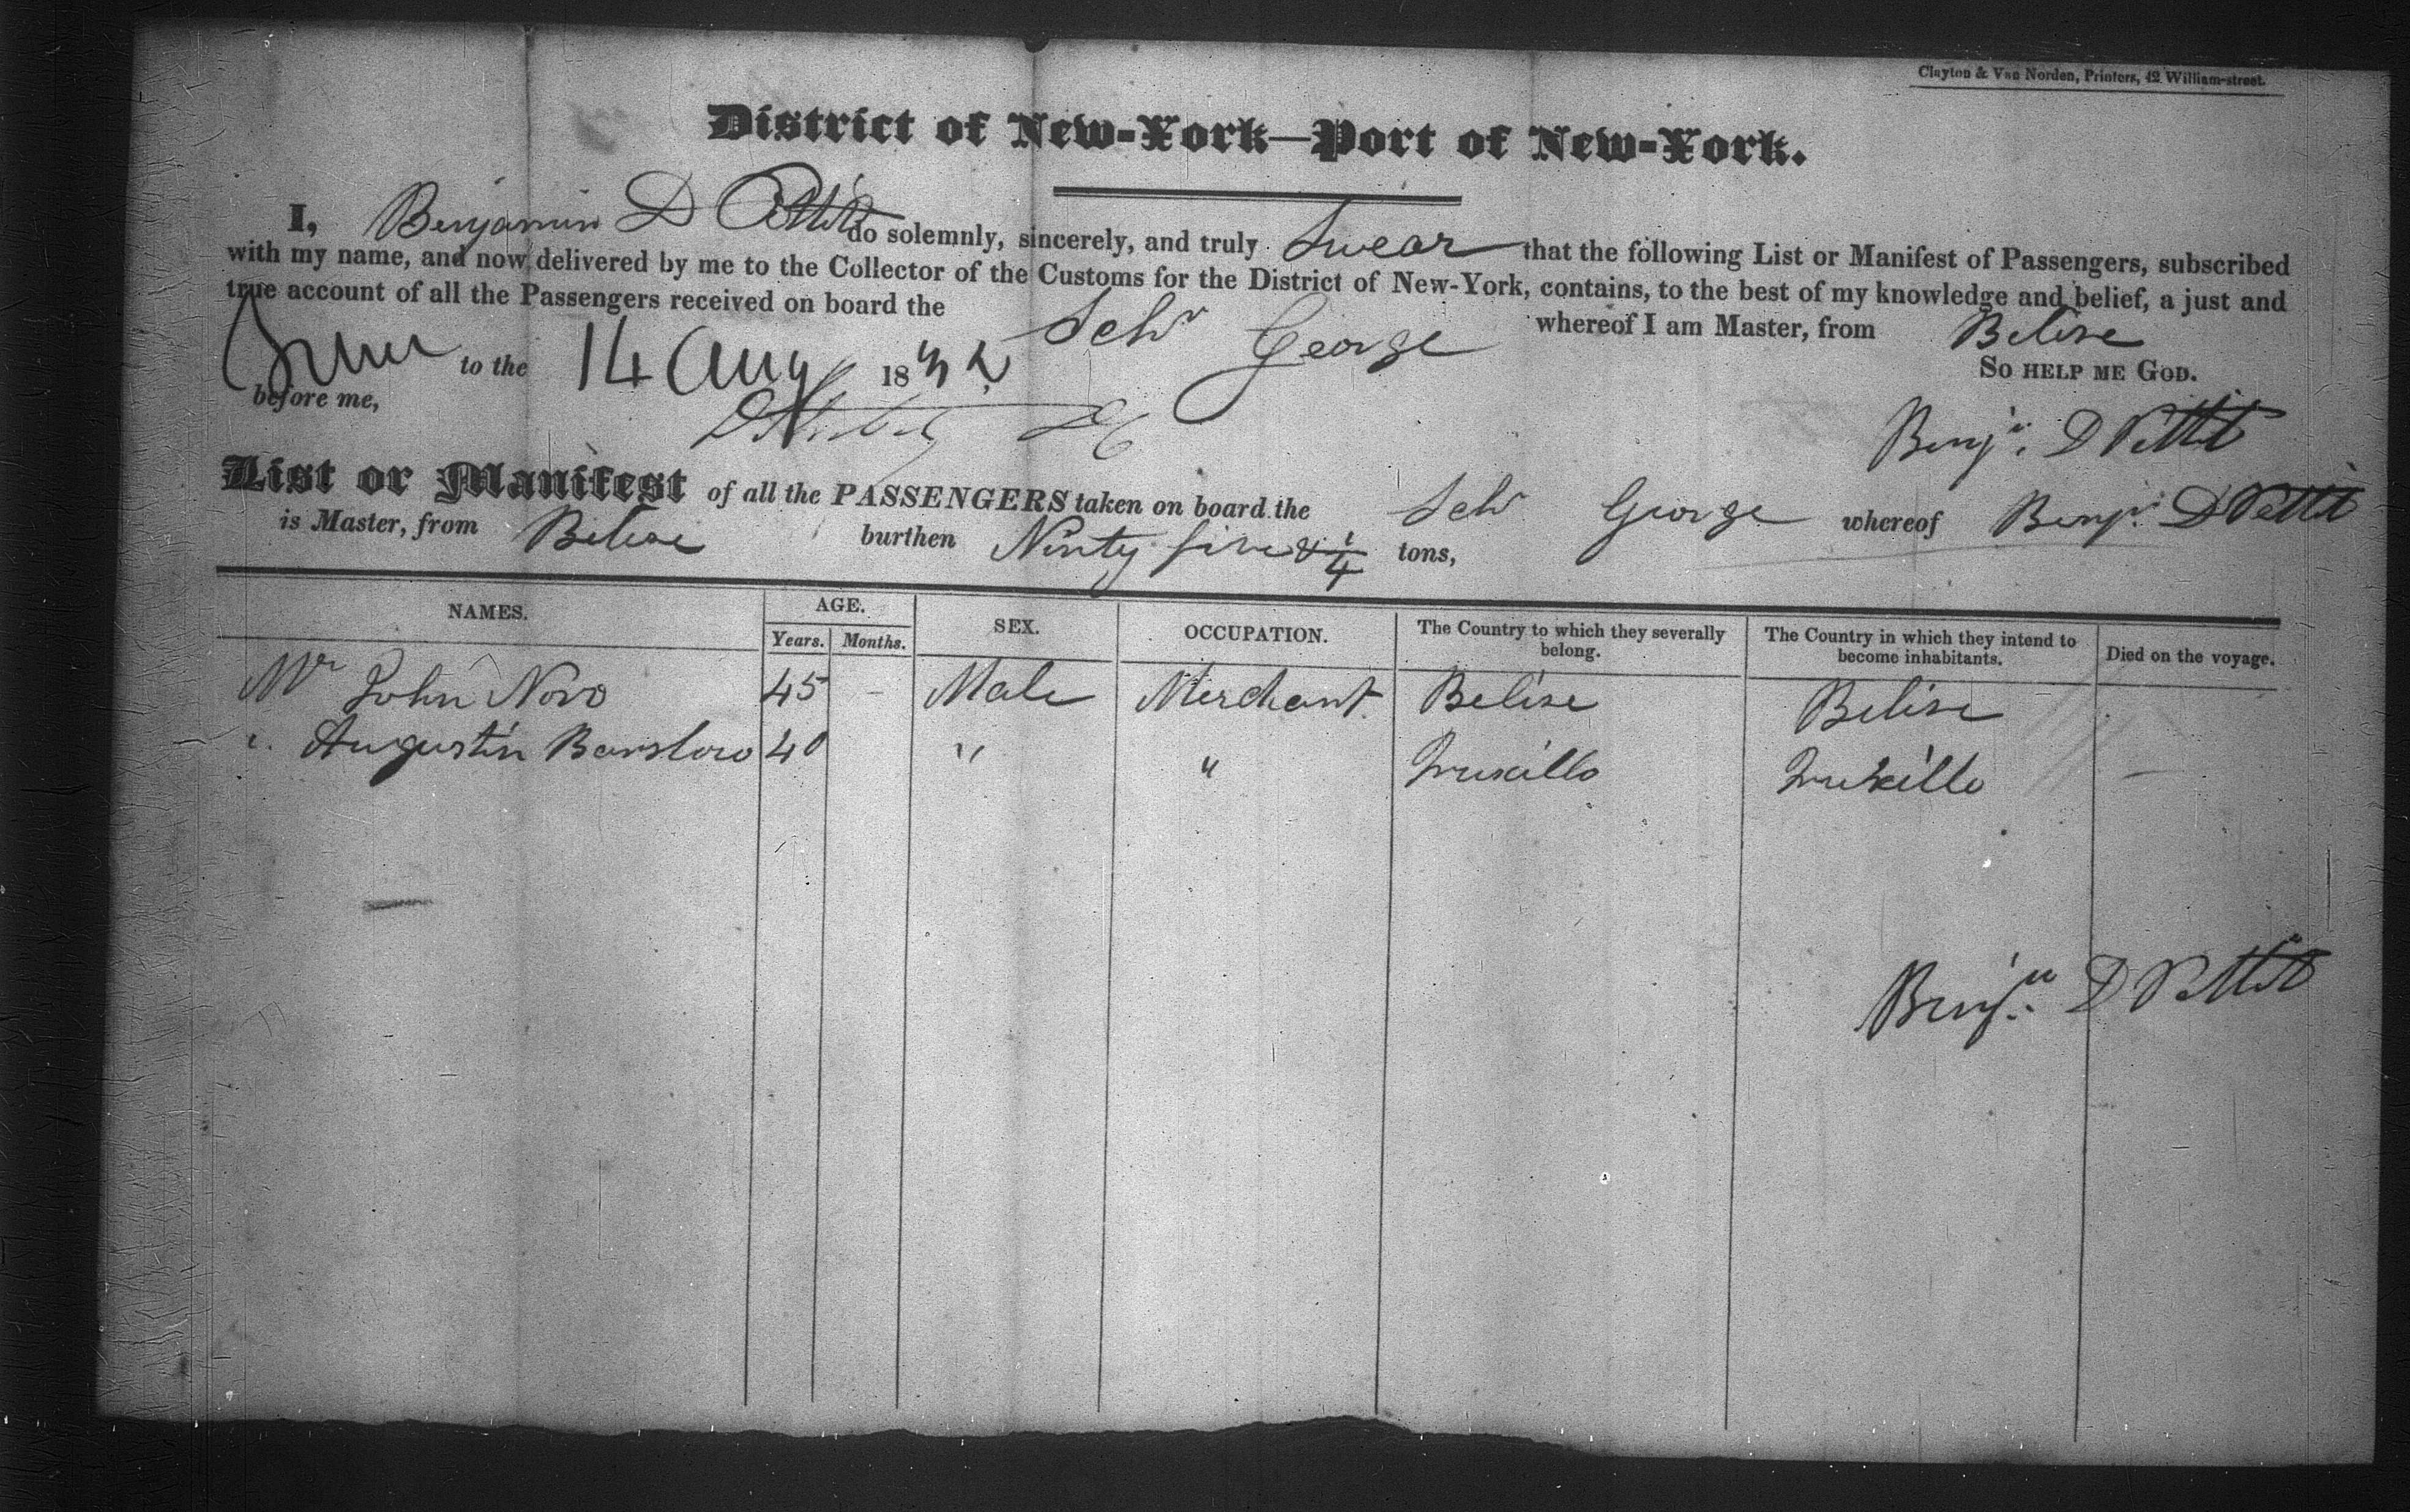 Clayton & Van Norden, Printers, 42 William-street.
District of New-York—Port of New-York.
I, Benjamin D Pettit do solemnly, sincerely, and truly Swear that the following List or Manifest of Passengers, subscribed
with my name, and now delivered by me to the Collector of the Customs for the District of New-York, contains, to the best of my knowledge and belief, a just and
true account of all the Passengers received on board the Schr George whereof I am Master, from Belise
to the 14 Aug 1832 So help me God.
before me,
Benjn. D Pettit
List or Manifest of all the PASSENGERS taken on board the Schr George whereof Benjn D Pettit
is Master, from Belise burthen Ninty five & 1/4 tons,
NAMES. AGE. SEX. OCCUPATION. The Country to which they severally belong. The Country in which they intend to become inhabitants. Died on the voyage.
Years. Months.
Mr John Novo 45 – Male Merchant Belise Belise
" Augustin Barslow 40 " " Truxillo Truxillo —
Benjn D Pettit